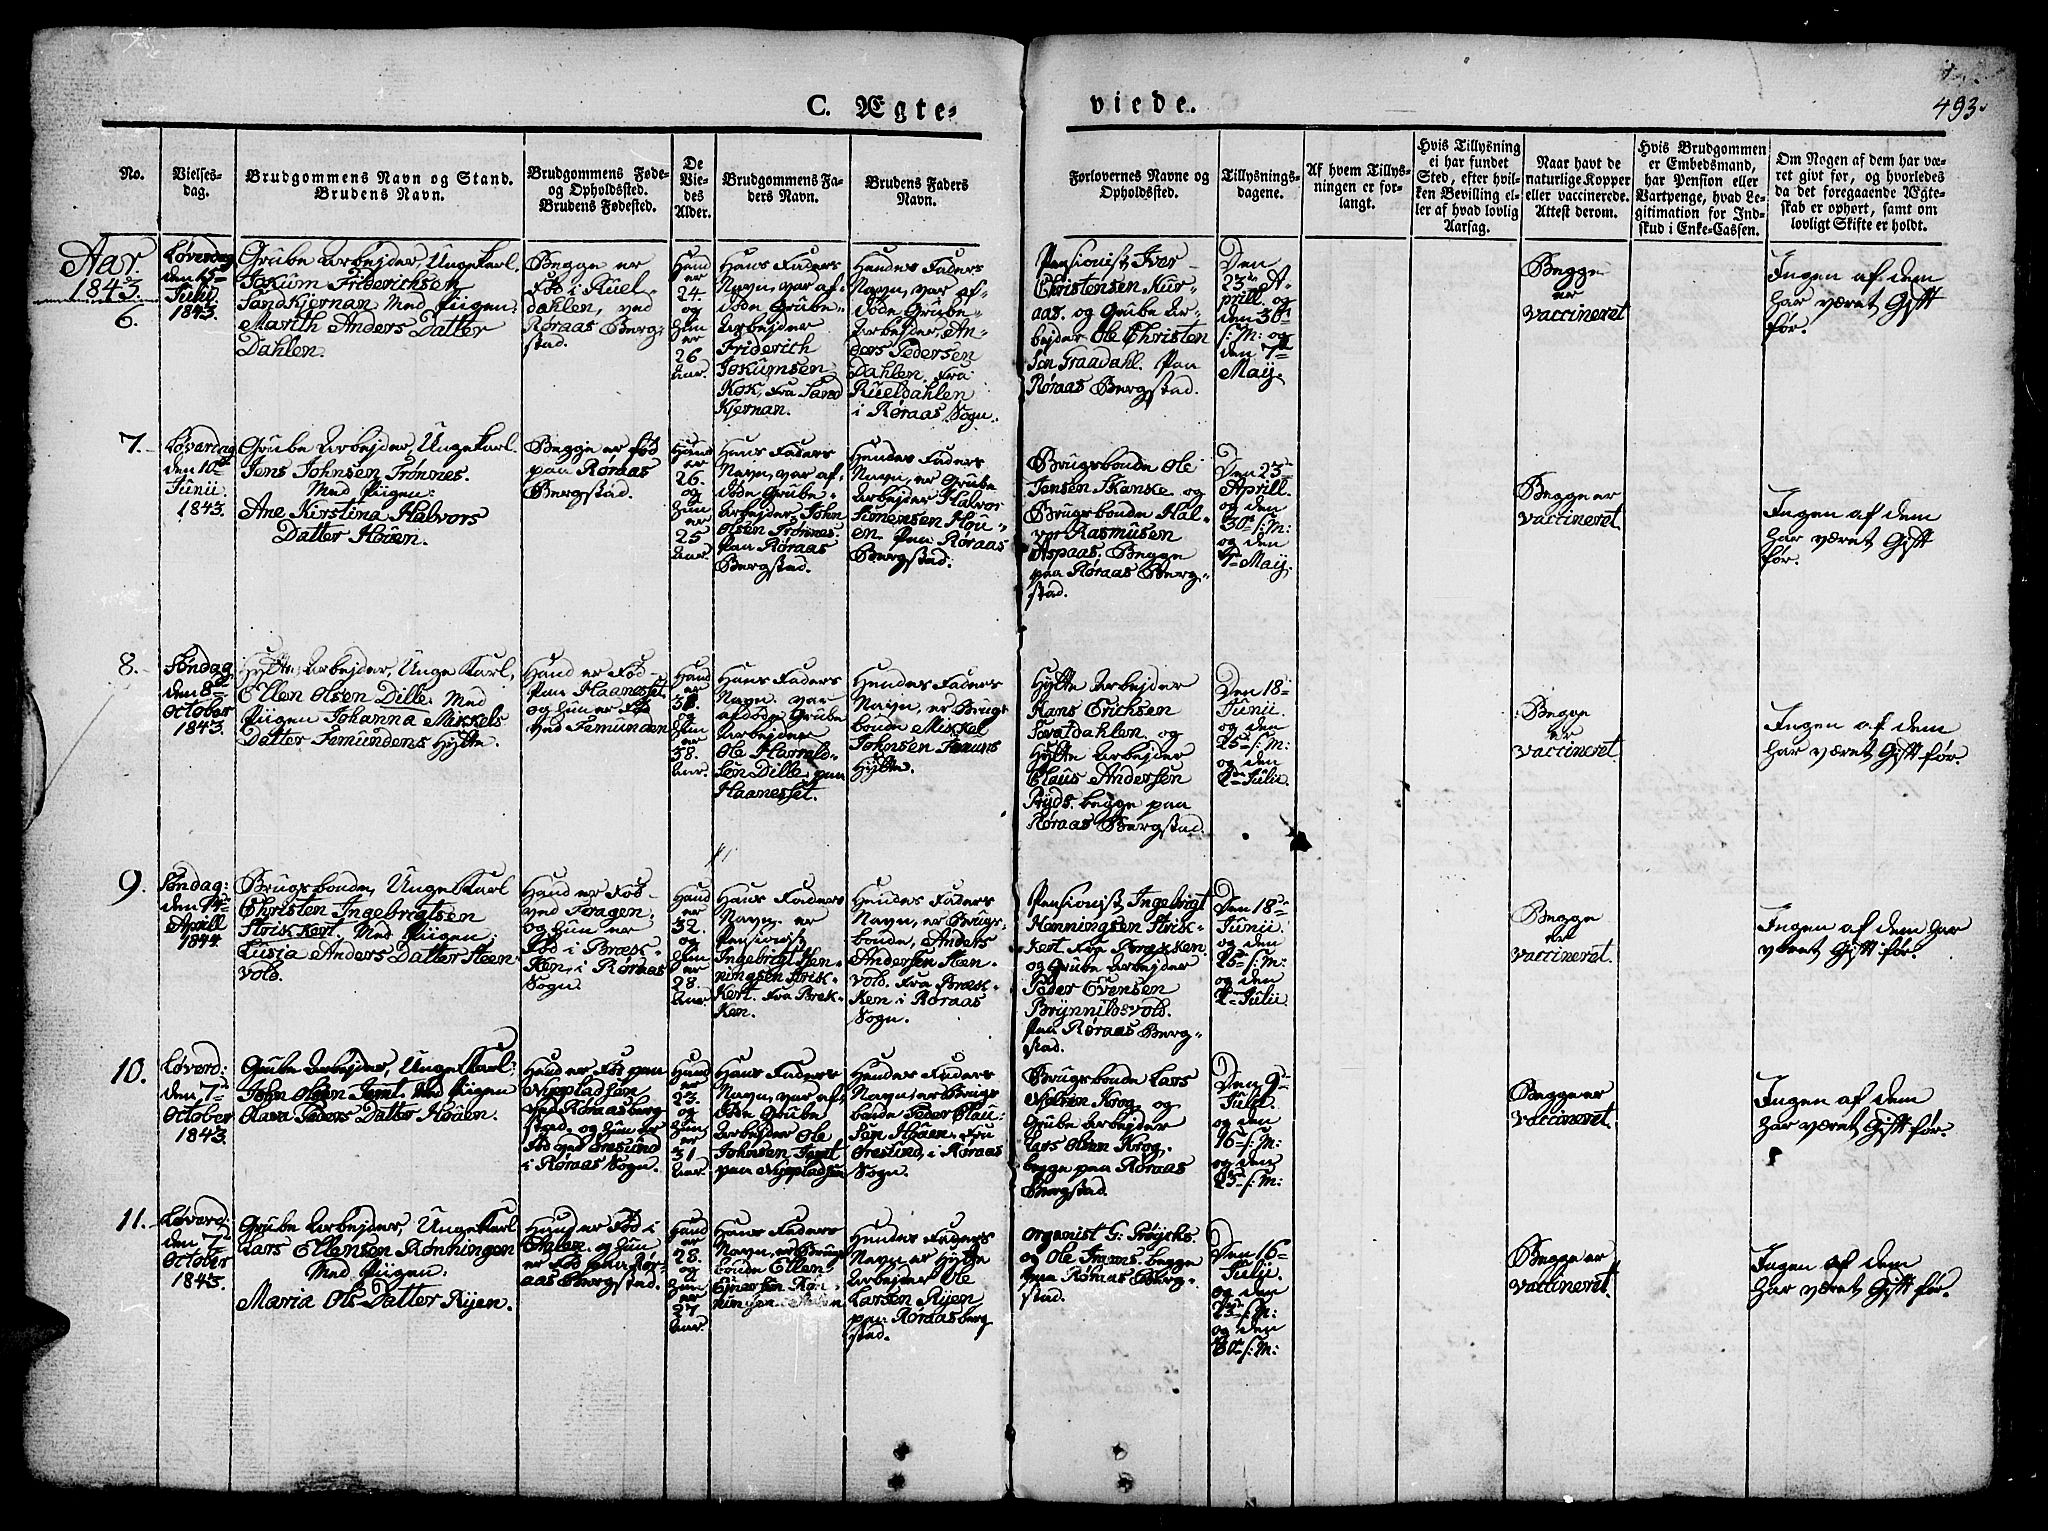 C. Ægte-
viede.
493.
No.
Vielses-
dag.
Brudgommens Navn og Stand.
Brudens Navn.
Brudgommens Føde-
og Opholdssted.
Brudens Fødested.
De
Vie-
des
Alder.
Brudgommens Fa-
ders Navn.
Brudens Faders
Navn.
Forlovernes Navne og
Opholdssted.
Tillysnings-
dagene.
Af hvem Tillys-
ningen er for-
langt.
Hvis Tillysning
ei har fundet
Sted, efter hvil-
ken Bevilling el-
ler af hvad lovlig
Aarsag.
Naar havt de
naturlige Kopper
eller vaccinerede.
Attest derom.
Hvis Brudgommen
er Embedsmand,
har Pension eller
Vartpenge, hvad Le-
gitimation for Ind-
skud i Enke-Cassen.
Om Nogen af dem har væ-
ret gift før, og hvorledes
da det foregaaende Ægte-
skab er ophørt, samt om
lovligt Skifte er holdt.
Aar
1843.
6.
Løverdag
den 15de
Julii
1843.
Grube Arbejder, Unge Karl.
Jokum Friderichsen
Sandkjernan Med Piigen:
Marith Anders Datter
Dahlen.
Begge er
Fød i Ruel
dahlen, ved
Røraas Berg-
stad.
Hand
er
24.
og
Hun
er
26
Aar.
Hans Faders
Navn, var af-
døde Grube-
Arbejder
Friderich
Jokumsen
Kok, Fra Sand
Kjernan.
Hendes Faders
Navn, var af-
døde Grube-
Arbejder, An-
ders Pedersen
Dahlen. Fra
Rueldahlen
i Røraas Sogn.
Pensionist Iver
Christensen Kur-
aas. og Grube Ar-
bejder Ole Christen
sen Traadahl. Paa
Røraas Bergstad.
Den
23de A-
prill. og
den 30te
s: M: og
den 7de
Maij.
Begge
er
vaccineret
Ingen af dem
har været Gift
før.
7.
Løverdag
den 10de
Junii.
1843.
Grube Arbejder, Unge Karl.
Jens Johnsen Trønnes.
Med Piigen:
Ane Kirstina Halvors
Datter Houen.
Begge er fød
paa Røraas
Bergstad.
Hand
er
26.
og
Hun
er
25
Aar.
Hans Faders
Navn, var af-
døde Grube-
Arbejder John
Olsen Trønnes.
Paa Røraas
Bergstad.
Hendes Faders
Navn, er Grube
Arbejder Halvor
Simensen Hou-
en. Paa Røraas
Bergstad.
Brugsbonde Ole
Jensen Skanke. og
Brugsbonde Hal-
vor Rasmusen
Aspaas. Begge
paa Røraas Berg-
stad.
Den 23de
Aprill.
og den
30te s: M:
og den
7de Maij.
Begge er
vaccineret
Ingen af dem
har været Gift
før.
8.
Søndag
den 8de
October
1843.
Hytte, Arbejder, Unge Karl,
Ellen Olsen Dille. Med
Piigen Johanna Mikkels
Datter Femundens Hytte.
Hand er Fød
Paa Haanesset.
og hun er Fød
ved Femunden
Hand
er
38.
og
Hun
er
38.
Aar.
Hans Faders
Navn. var
afdøde Grube
Arbejder
Ole Harrald-
sen Dille, paa
Haanesset.
Hendes Faders
Navn, er Brugs
bonde Mickel
Johnsen Femuns
Hytte.
Hytte Arbejder
Hans Erichsen
dahlen, og
Hytte Arbejder
Claus Andersen
Ryds. begge paa
Røraas Bergstad.
Den 18de
Junii.
og den
25de s: M:
og den
2de Julii.
Begge
er
vaccineret
Ingen af dem
har været Gift før.
9.
Søndag:
den 14de
Aprill
1844.
Brugsbonde, Unge Karl
Christen Ingebrigtsen
Strickert. Med Piigen:
Lusia Anders Datter Steen
vold.
Hand er Fød
ved Foragen.
og hun er
Fød i Bræk-
ken, i Røraas
Sogn.
Hand
er
32.
og
Hun
er
28.
Aar.
Hans Faders
Navn. er
Pensionist
Ingebrigt Hen-
ningsen Strik-
kert. Fra Brek-
ken.
Hendes Faders
Navn, er Brugs-
bonde, Anders
Andersen Steen-
vold. Fra Bræk-
ken. i Røraas
Sogn.
Pensionist Ingebrigt
Henningsen Strik-
kert
og Grube Arbejder
Peder Evensen
Brynnildsvold.
Paa Røraas Berg-
stad.
Den 18de
Junii
og den
25de s: M:
og den
2de Julii
Begge
er
vaccineret.
Ingen af dem har
været Gift før.
10.
Løverd:
den 7de
October
1843.
Grube Arbejder, Unge Karl:
John Olsen Jemt. Med Piigen
Olava Peders Datter Houen.
Hand er Fød paa
Nypladsen
ved Røraasberg
stad. og hun er
Fød ved Øresund
i Røraas Sogn.
Hand
er
23.
og
Hun
er
31
Aar.
Hans Faders
Navn, var af-
døde Grube
Arbejder Ole
Johnsen Jemt
paa Nypladsen
Hendes Faders
Navn er Brugs
bonde Peder Clau-
sen Houen. Fra
Øresund, i Røraas
Sogn.
Brugsbonde Lars
Krog og
Grube Arbejder
Lars Olsen Krog.
begge paa Røraas
Bergstad.
Den 9de
Julii.
og den
16de s: M:
og den
23de s: M:
Begge er
vaccineret.
Ingen af dem
har været Gift før.
11.
Løverd:
den 7de
October
1843.
Grube Arbejder, Unge Karl
Lars Ellensen Rønningen
Med Piigen:
Maria Ols Datter Ryen.
Hand er Fød i
Aalen. og hun
er Fød paa Rør-
aas Bergstad.
Hand
er
28.
og
Hun
er
27
Aar.
Hans Faders
Navn, er Brugs
bonde Ellen
Einersen Røn-
ningen. Aalen
Hendes Faders
Navn er Hytte
Arbejder Ole
Larsen Ryen
paa Røraasberg
stad.
Organist G:
og Ole begge
paa Røraas Berg-
stad.
Den 16de
Julii.
og den
23de s: M:
og den
30te s: M:
Begge er
vaccineret
Ingen af dem
har været Gift før.